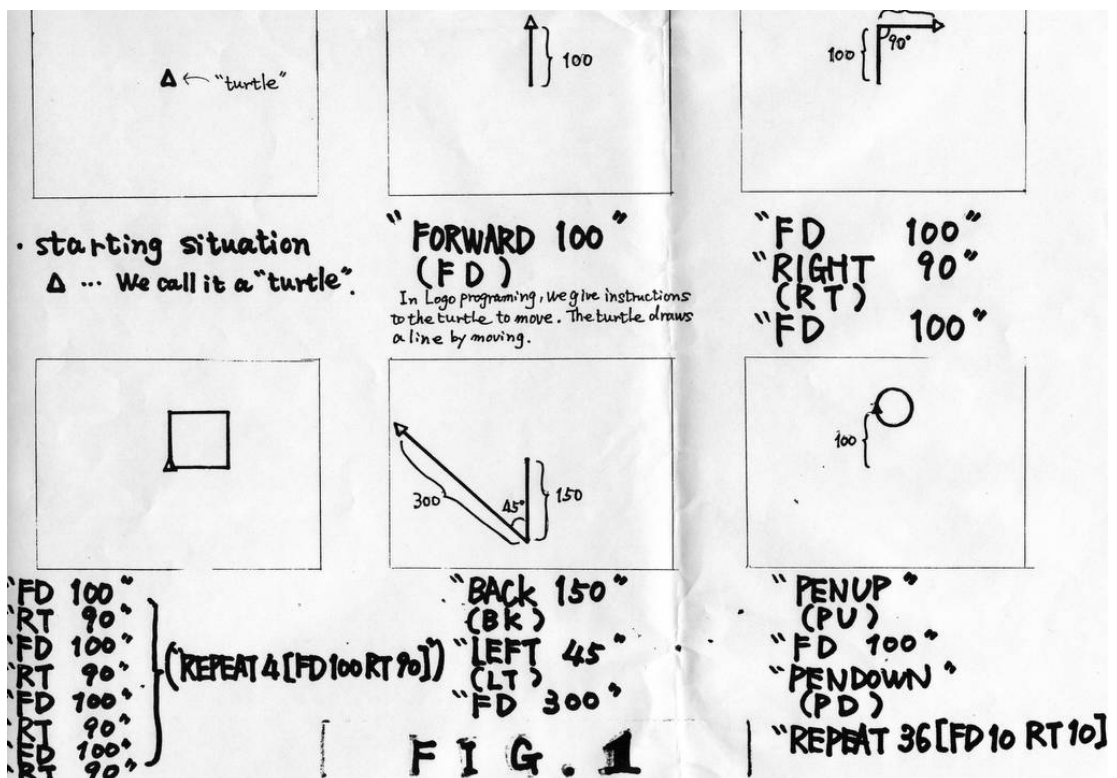 "turtle"
100
100
90°
· starting situation
Δ ... We call it a "turtle".
"FORWARD 100"
(FD)
In Logo programing, we give instructions
to the turtle to move. The turtle draws
a line by moving.
"FD 100"
"RIGHT 90"
(RT)
"FD 100"
300
45°
150
100
"FD 100"
"RT 90"
"FD 100"
"RT 90"
"FD 100"
"RT 90"
"FD 100"
"RT 90"
("REPEAT 4 [FD 100 RT 90]")
"BACK 150"
(BK)
"LEFT 45"
(LT)
"FD 300"
"PENUP"
(PU)
"FD 100"
"PENDOWN"
(PD)
"REPEAT 36 [FD 10 RT 10]
FIG.1